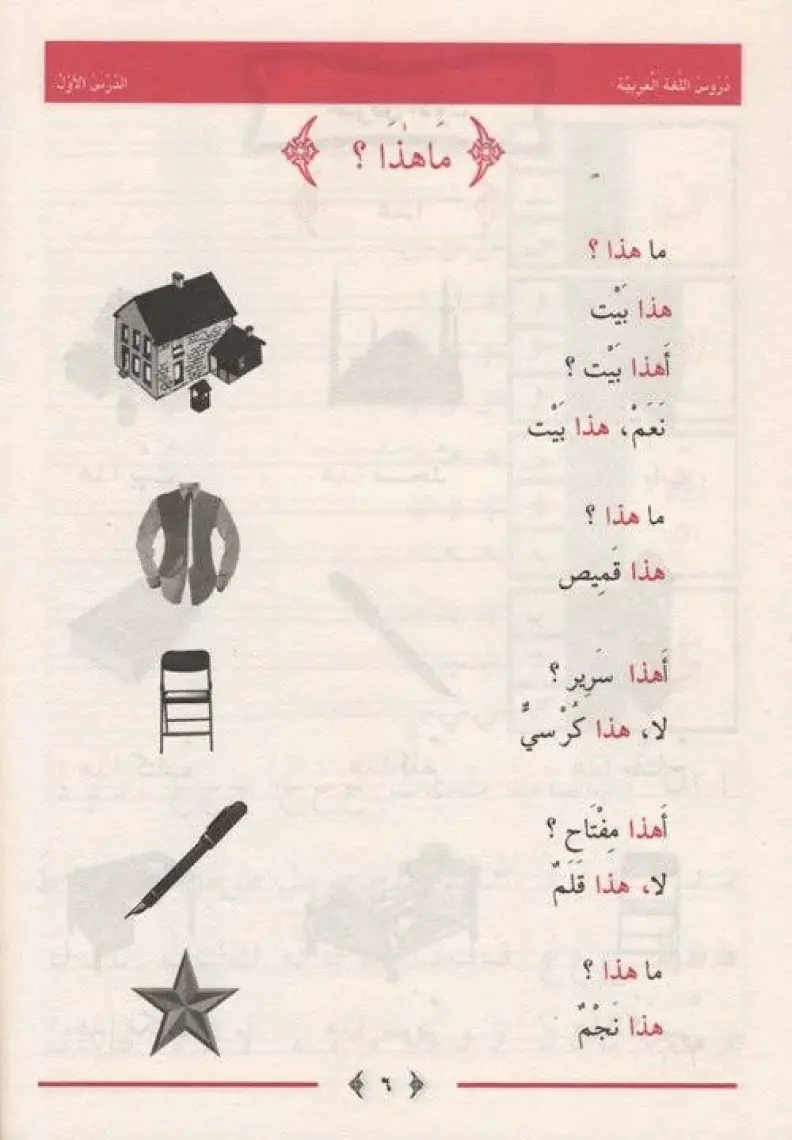 دُرُوسُ اللُّغَةِ الْعَرَبِيَّةِ
الدَّرْسُ الأَوَّلُ
مَاهٰذَا ؟
ما هذا ؟
هذا بَيْت
أَهذا بَيْت ؟
نَعَمْ، هذا بَيْت
ما هذا ؟
هذا قَمِيص
أَهذا سَرِير ؟
لا، هذا كُرْسيٌّ
أَهذا مِفْتَاح ؟
لا، هذا قَلَمٌ
ما هذا ؟
هذا نَجْمٌ
٦